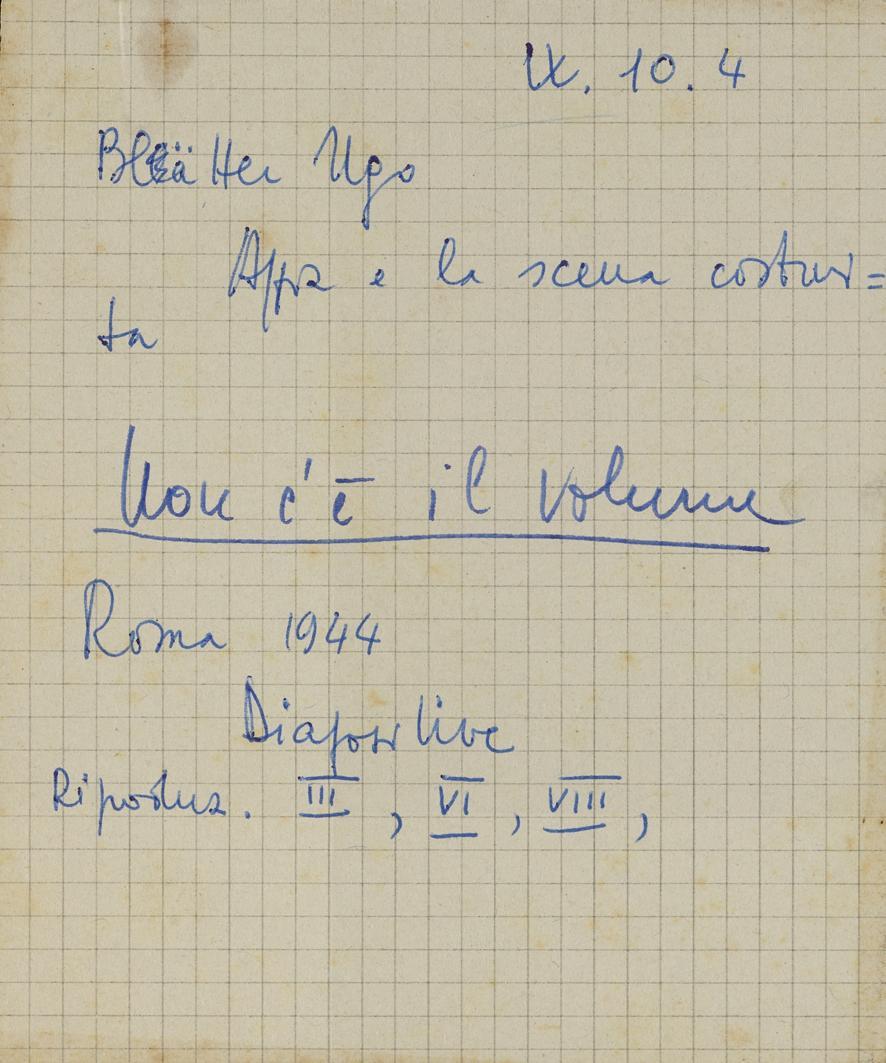 IX. 10. 4
Blätter Ugo
Appia e la scena costrui=
ta
Non c'è il volume
Roma 1944
Diapositive
Riproduz. III, VI, VIII,